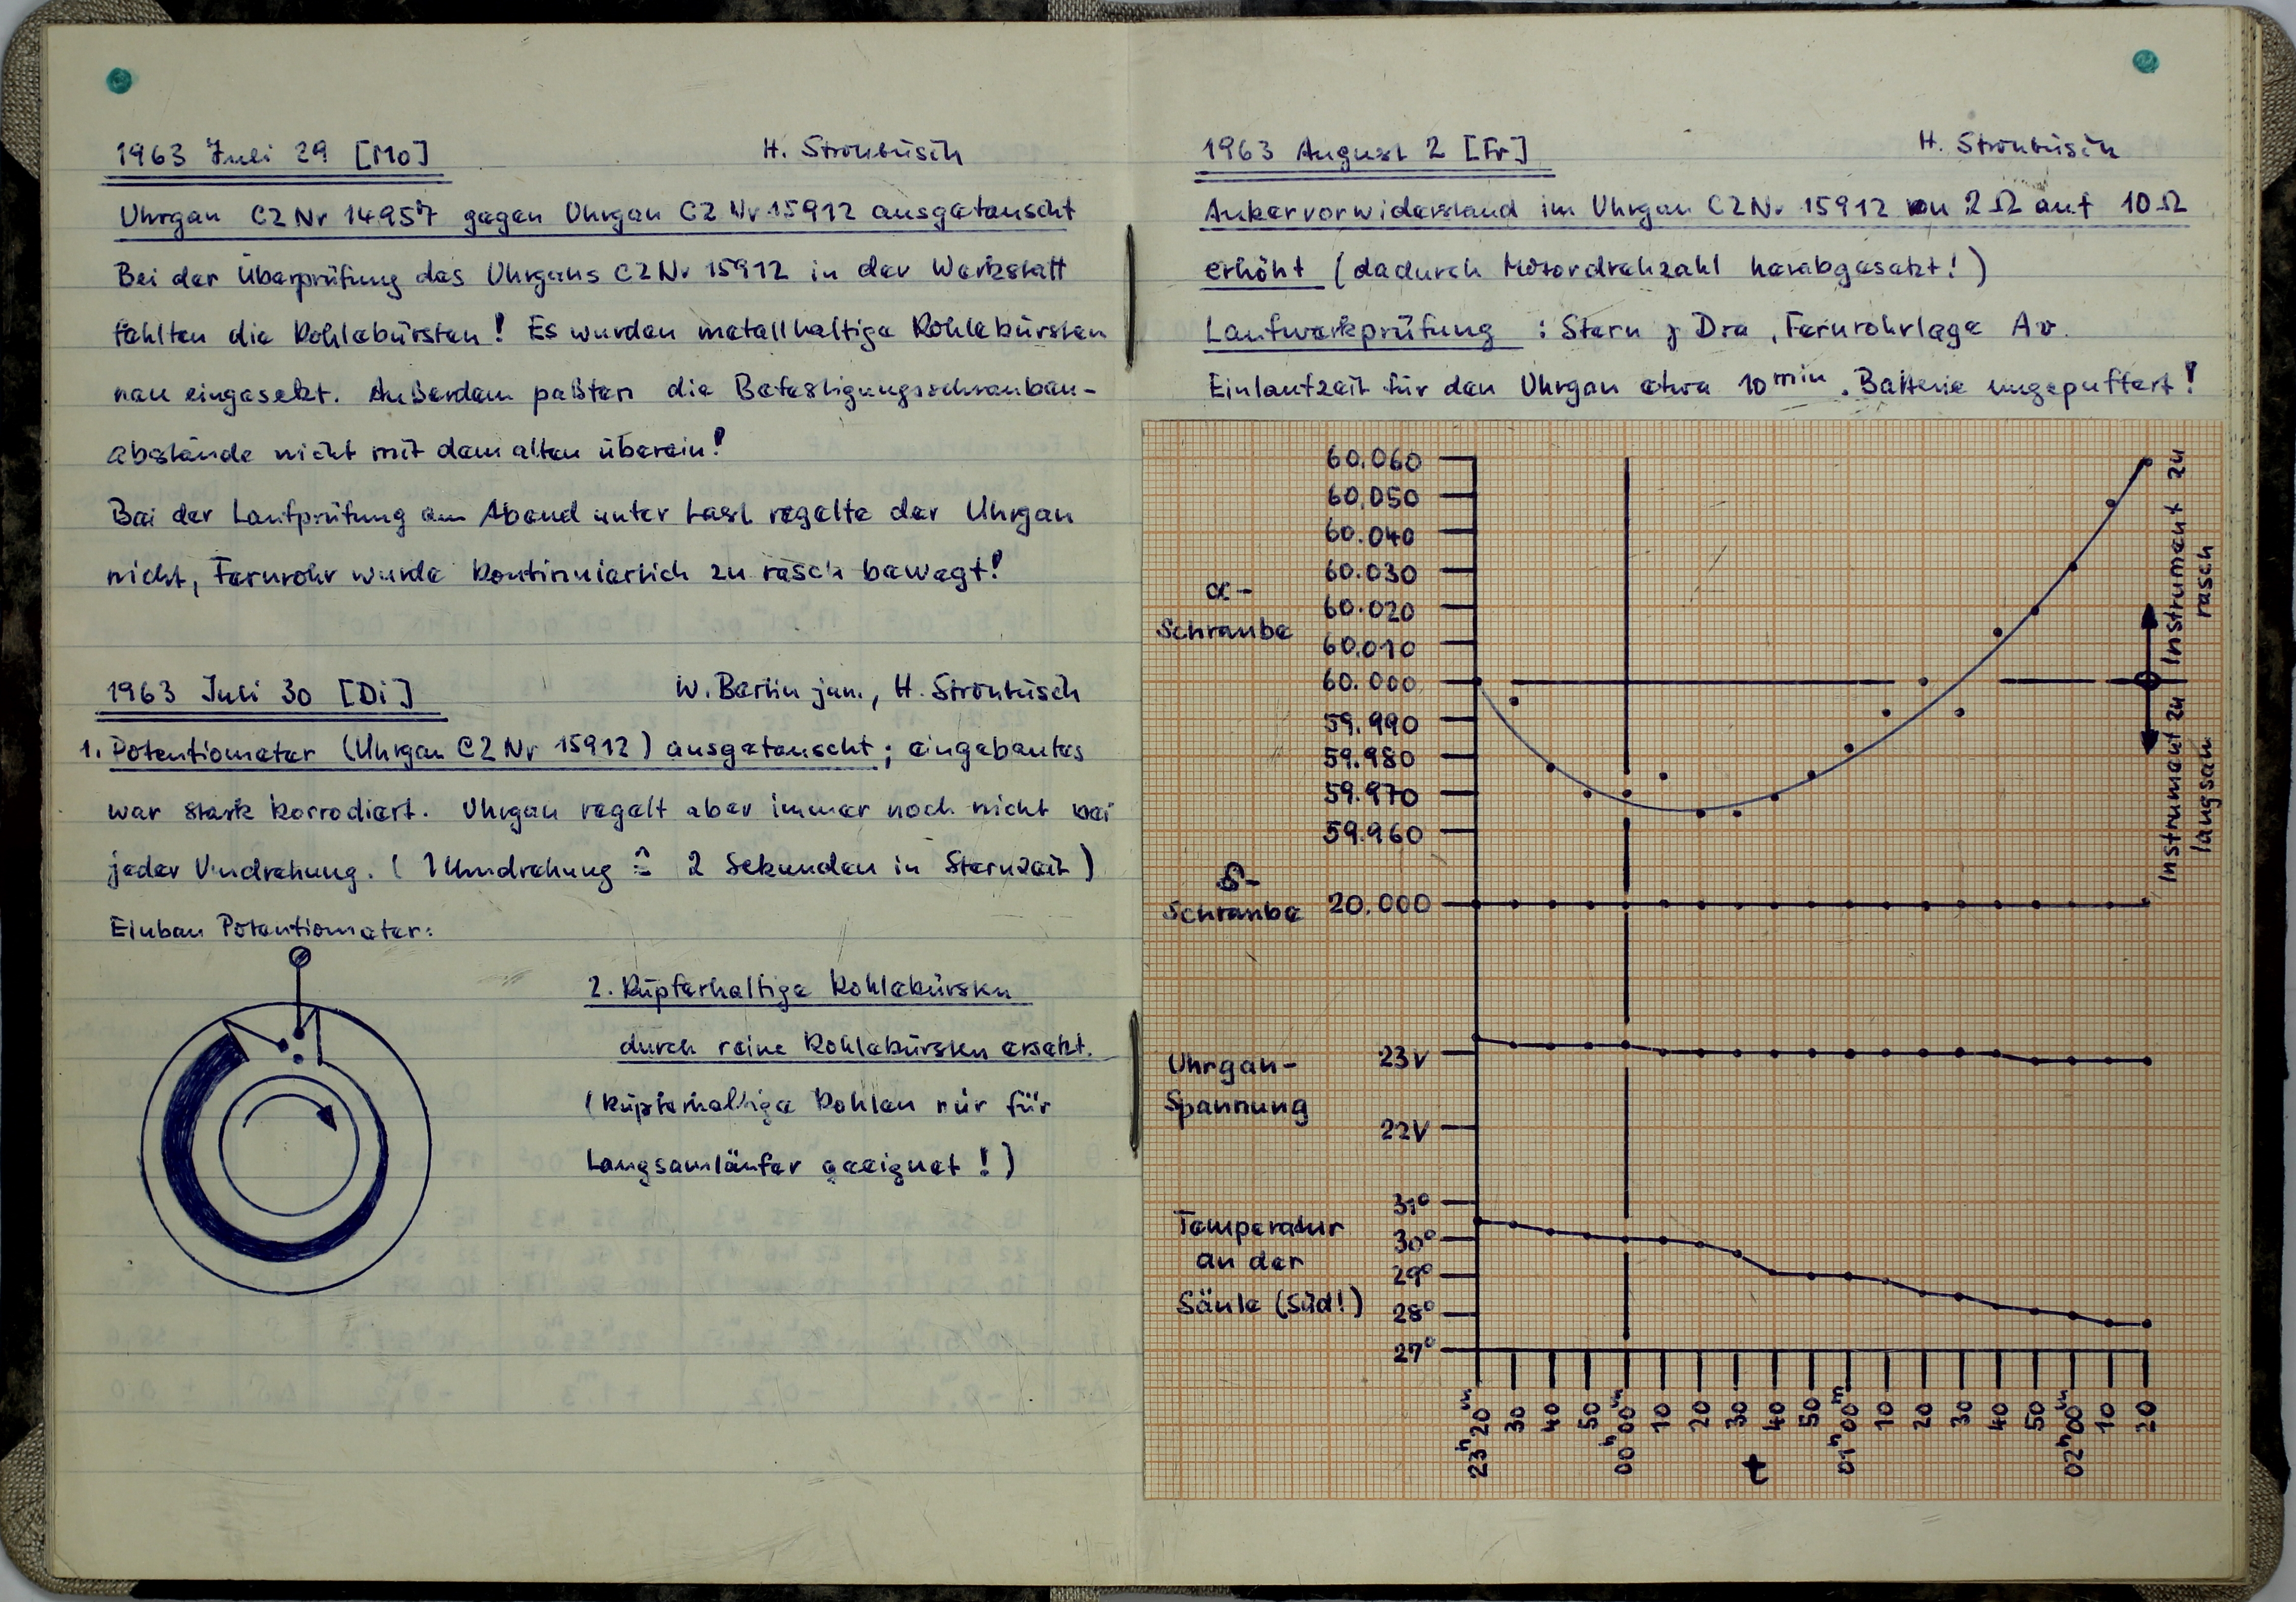 1963 Juli 29 [Mo] H. Strönbüsch
Uhrgan CZ Nr 14957 gegen Uhrgan CZ Nr 15912 ausgetauscht
Bei der Überprüfung des Uhrgans CZ Nr 15912 in der Werkstatt
fehlten die Kohlebürsten! Es wurden metallhaltige Kohlebürsten
neu eingesetzt. Außerdem paßten die Befestigungsschrauben-
abstände nicht mit dem alten überein!
Bei der Laufprüfung am Abend unter Last regelte der Uhrgan
nicht, Fernrohr wurde kontinuierlich zu rasch bewegt!
1963 Juli 30 [Di] W. Bertin jun., H. Strönbüsch
1. Potentiometer (Uhrgan CZ Nr 15912) ausgetauscht; eingebautes
war stark korrodiert. Uhrgan regelt aber immer noch nicht bei
jeder Umdrehung. (1 Umdrehung ≙ 2 Sekunden in Sternzeit)
Einbau Potentiometer:
2. Kupferhaltige Kohlebürsten
durch reine Kohlebürsten ersetzt.
(Kupferhaltige Kohlen nur für
Langsamläufer geeignet!)
1963 August 2 [Fr] H. Strönbüsch
Ankervorwiderstand im Uhrgan CZ Nr 15912 von 2 Ω auf 10 Ω
erhöht (dadurch Motordrehzahl herabgesetzt!)
Laufwerkprüfung : Stern γ Dra, Fernrohrlage Av.
Einlaufzeit für den Uhrgan etwa 10 min. Batterie ungepuffert!
α-
Schraube
60.060
60.050
60.040
60.030
60.020
60.010
60.000
59.990
59.980
59.970
59.960
Instrument zu
rasch
Instrument zu
langsam
δ-
Schraube
20.000
Uhrgan-
Spannung
23V
22V
Temperatur
an der
Säule (Süd!)
31°
30°
29°
28°
27°
23h20m 30 40 50 00h00m 10 20 30 40 50 01h00m 10 20 30 40 50 02h00m 10 20
t